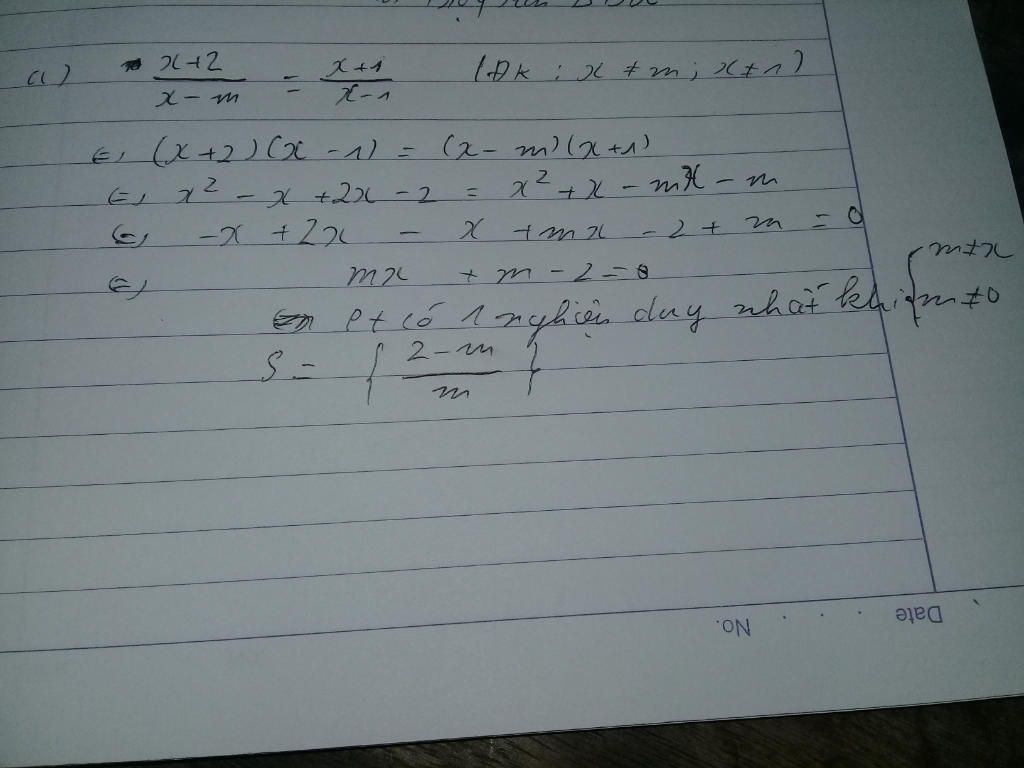 a) \frac{x+2}{x-m} = \frac{x+1}{x-1} (Đk : x ≠ m ; x ≠ 1)
⇔ (x+2)(x-1) = (x-m)(x+1)
⇔ x² - x + 2x - 2 = x² + x - mx - m
⇔ -x + 2x - x + mx - 2 + m = 0
⇔ mx + m - 2 = 0
pt có 1 nghiệm duy nhất khi { m ≠ x
m ≠ 0
S = { \frac{2-m}{m} }
Date
No.